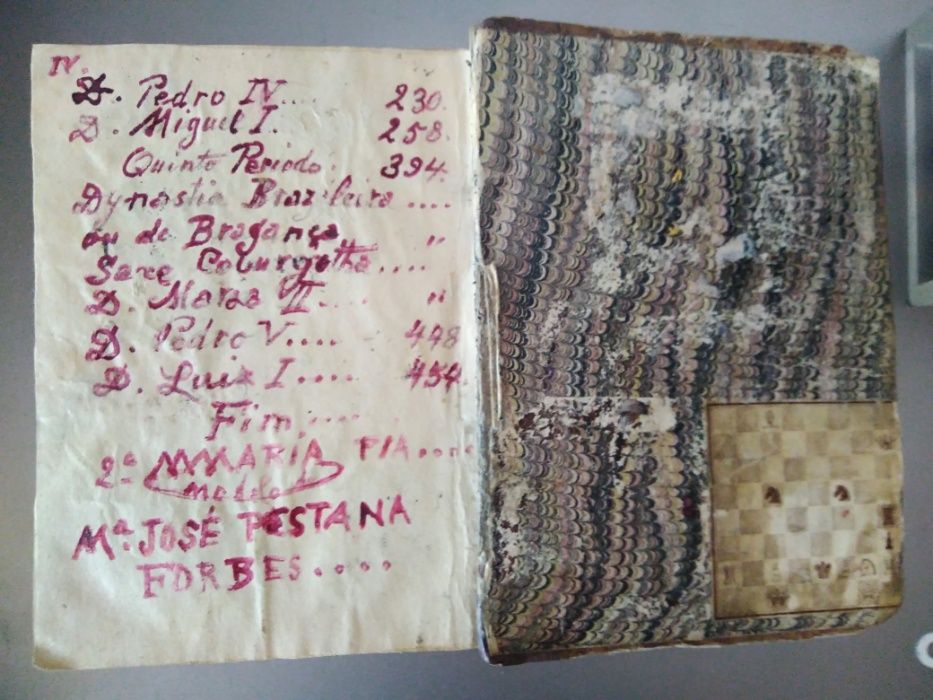 IV.
D. Pedro IV.... 230.
D. Miguel I. 258.
Quinto Periodo. 394.
Dynastia Brazileira ....
ou de Bragança "
Saxe Coburgotha....
D. Maria II.... "
D. Pedro V.... 448
D. Luiz I.... 454.
Fim.....
2ª MARIA PIA....
Mª. JOSÉ PESTANA
FORBES....